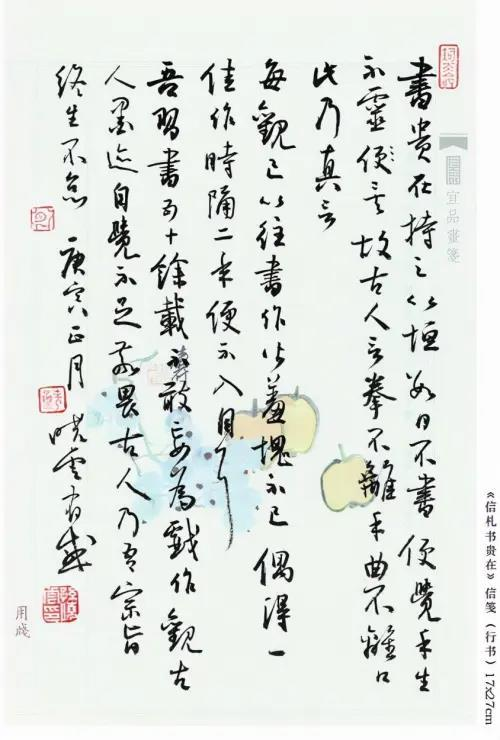 書貴在持之以恒数日不書便覺手生
不靈便故古人言拳不離手曲不離口
此乃真言
每觀已以往書作皆羞愧不已偶得一
佳作時隔二年便不入目了
吾習書十餘載不敢妄為戲作觀古
人墨迹自覺不足敬畏古人乃吾宗旨
終生不怠 庚寅正月 曉雲有感
宜品畫箋
用牋
《信札书贵在》信笺（行书）17x27cm